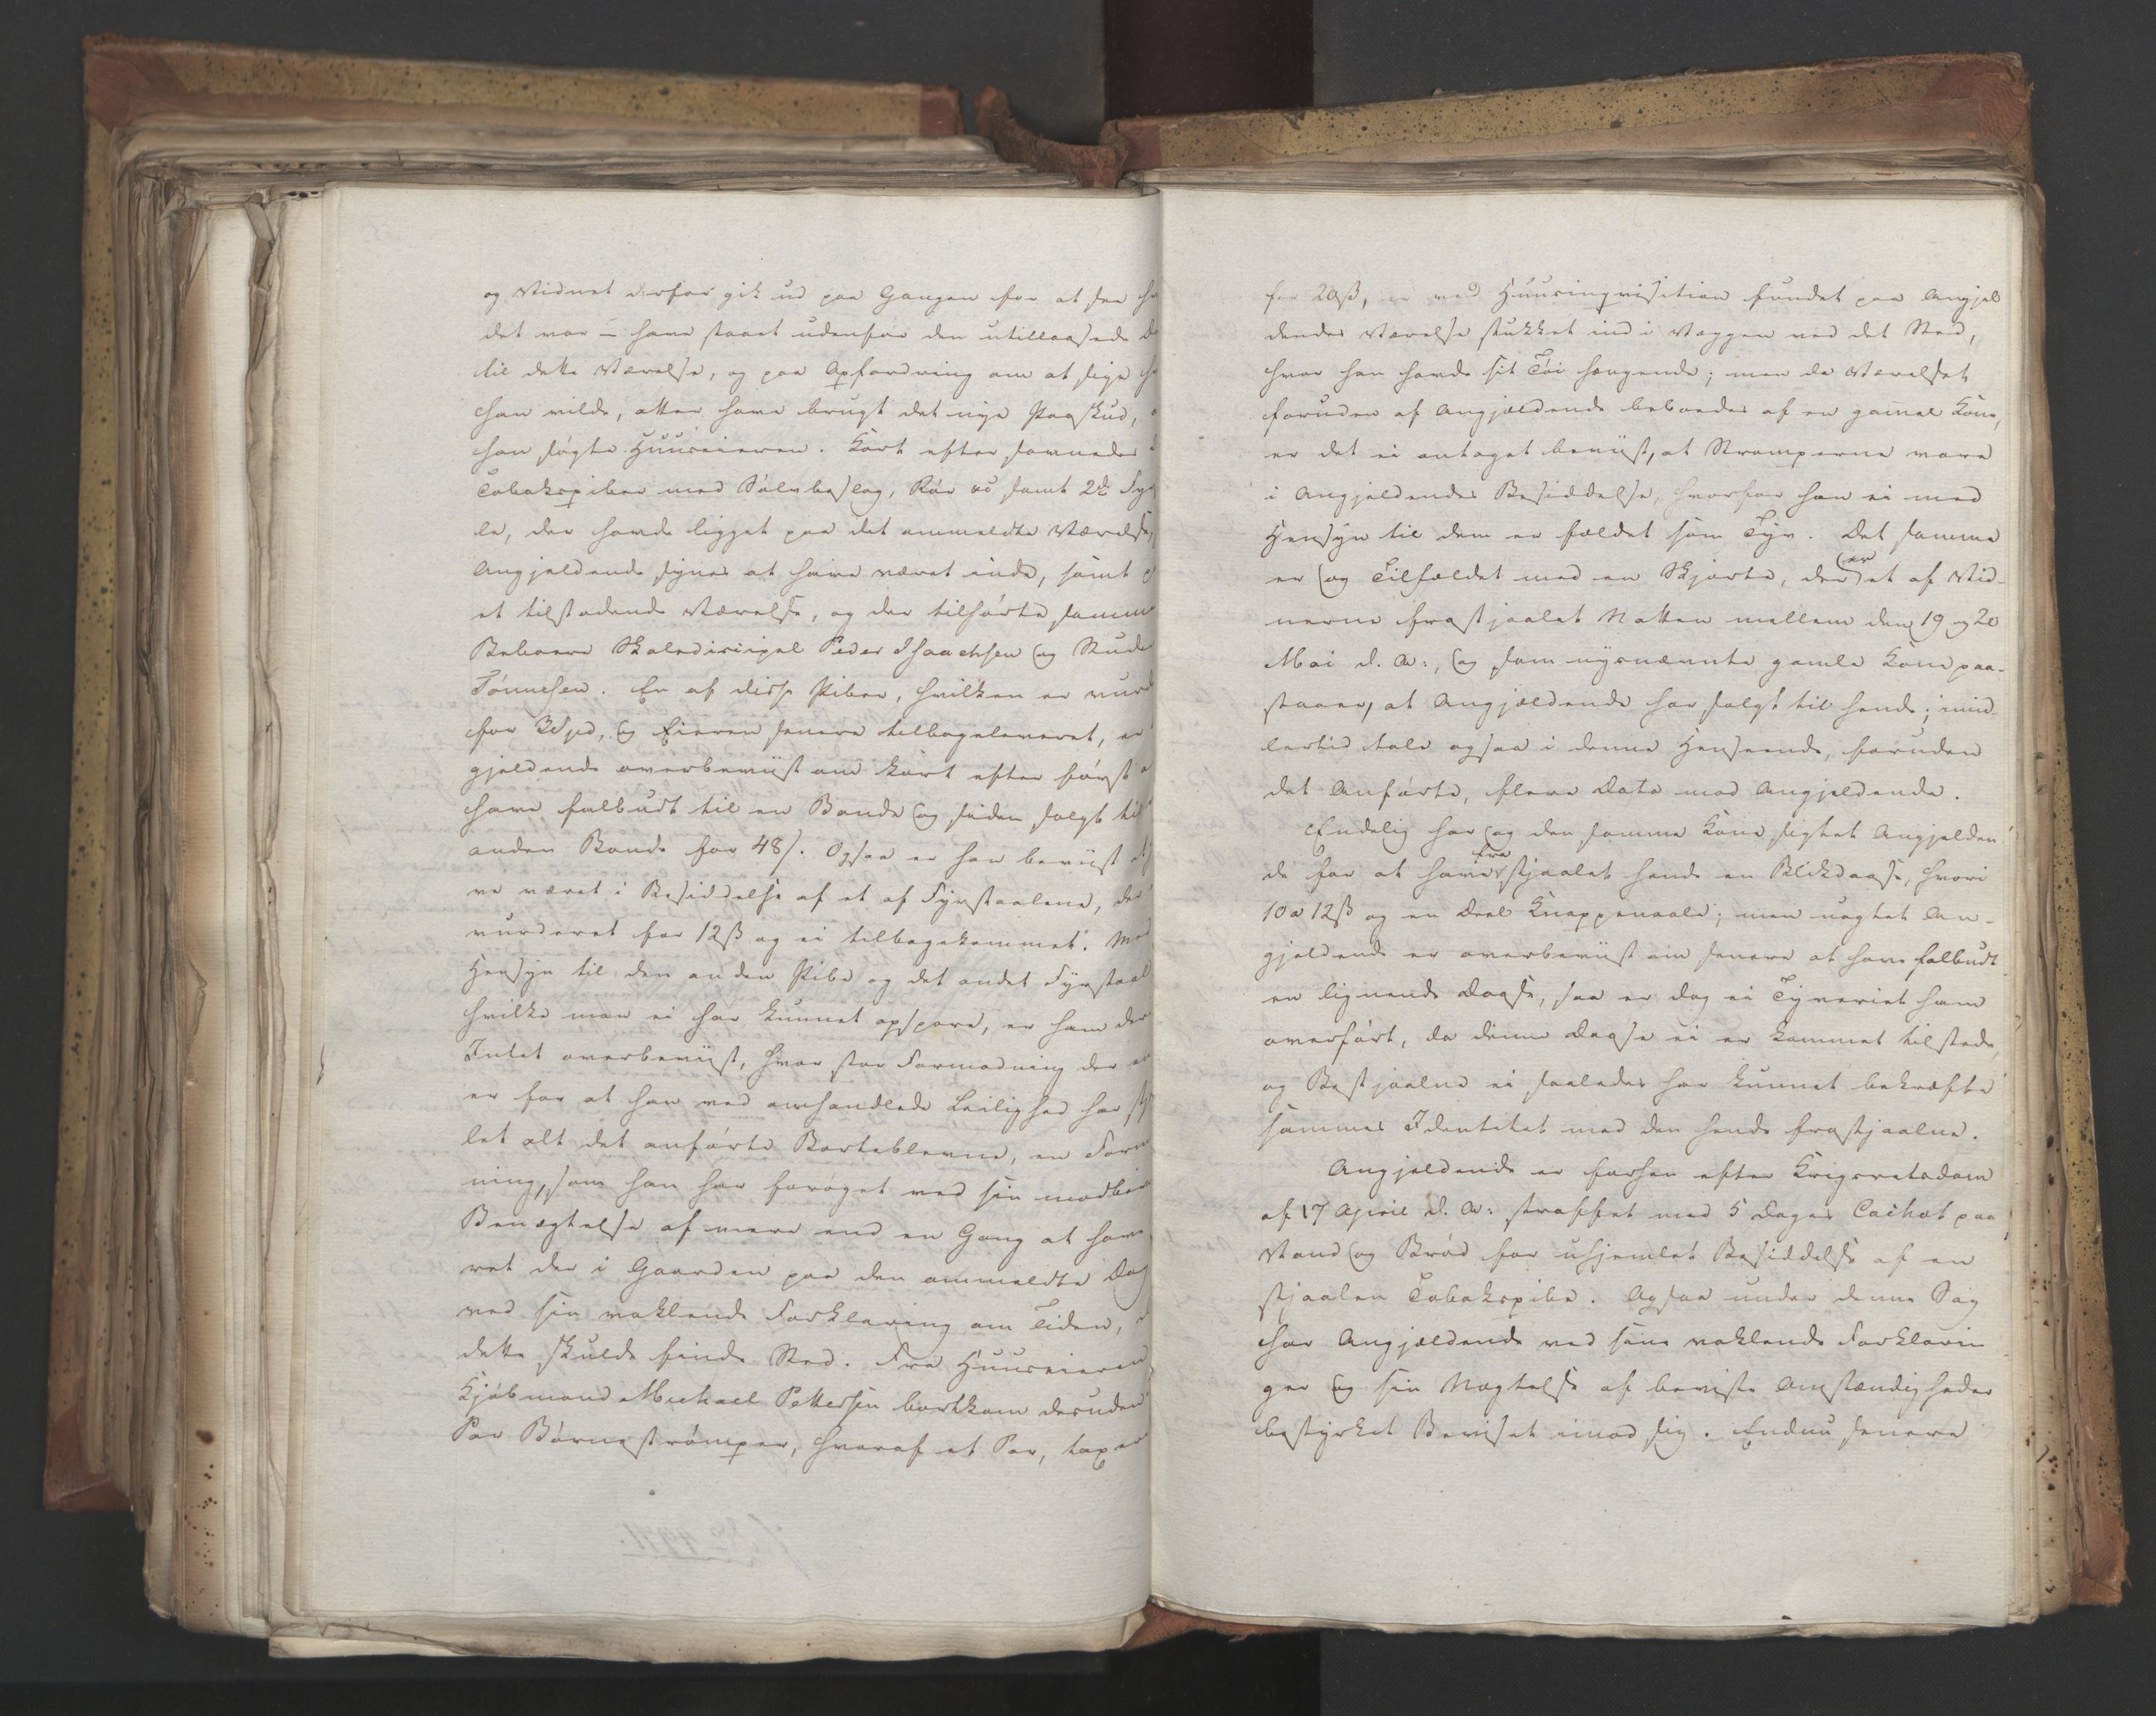 og Vidnet derfor gik ud paa Gangen for at see
det var – have staaet udenfor den utillaasede
til dette Værelse, og paa Opfordring om at sige
han vilde, atter have brugt det nye Paaskud,
han søgte Huuseieren. Kort efter savnedes
Tobakspiber med Sølvbeslag, Rør &c samt 2de Fyr
le, der havde ligget paa det ommeldte Værelse,
Angjeldende synes at have været inde, samt
et tilstødende Værelse, og der tilhørte samme
Beboere Skoledisipel Peder Isaachsen og Stude
Tønnesen. En af disse Piber, hvilken er vurd
for 3 Spd, og Eieren senere tilbageleveret, er
gjeldende overbeviist om kort efter først
have falbudt til en Bonde og siden solgt til
anden Bonde for 48 s. Ogsaa er han beviist at
ve været i Besiddelse af et af Fyrstaalene, der
vurderet for 12 ß og ei tilbagekommet. Med
Hensyn til den anden Pibe og det andet Fyrstaal
hvilke man ei har kunnet opspore, er ham der
Intet overbeviist, hvor stor Formodning der
er for at han ved omhandlede Leilighed har stj
let alt det anførte Bortblevne, en Form
ning, som han har forøget ved sin
Benægtelse af mere end en Gang at have
ret der i Gaarden paa den ommeldte Dag
ved sin vaklende Forklaring om Tiden,
dette skulde finde Sted. Fra Huuseieren
Kjøbmand Michael Pettersen bortkom desuden
Par Børnestrømper, hvoraf et Par, taxer
for 20 ß, er ved Huusinqvisition fundet paa Angjel
dendes Værelse stukket ind i Væggen ved det Sted,
hvor han havde sit Tøi hængende; men da Værelset
foruden af Angjældende beboedes af en gammel Kone,
er det ei antaget beviist, at Strømperne vare
i Angjeldendes Besiddelse, hvorfor han ei med
Hensyn til dem er fældet som Tyv. Det samme
er og Tilfældet med en Skjorte, der er et af Vid-
nerne frastjaalet Natten mellem den 19 og 20
Mai d. A:, og som nysnævnte gamle Kone paa-
staaer, at Angjældende har solgt til hende; imid-
lertid tale ogsaa i denne Henseende, foruden
det Anførte, flere Data mod Angjeldende.
Endelig har og den samme Kone sigtet Angjelden
de for at have frastjaalet hende en Blikdaase, hvori
10 a 12 ß og en Deel Knappenaale; men uagtet An-
gjeldende er overbeviist om senere at have falbudt
en lignende Daase, saa er dog ei Tyveriet ham
overført, da denne Daase ei er kommet tilstede,
og Bestjaalne ei saaledes har kunnet bekræfte
sammes Identitet med den hende frastjaalne.
Angjeldende er forhen efter Krigsretsdom
af 17 April d. A: straffet med 5 Dages Cachot paa
Vand og Brød for uhjemlet Besiddelse af en
stjaalen Tobakspibe. Ogsaa under denne Sag
har Angjældende ved sine vaklende Forklarin
ger og sin Nægtelse af beviste Omstændigheder
bestyrket Beviset imod sig. Endnu senere